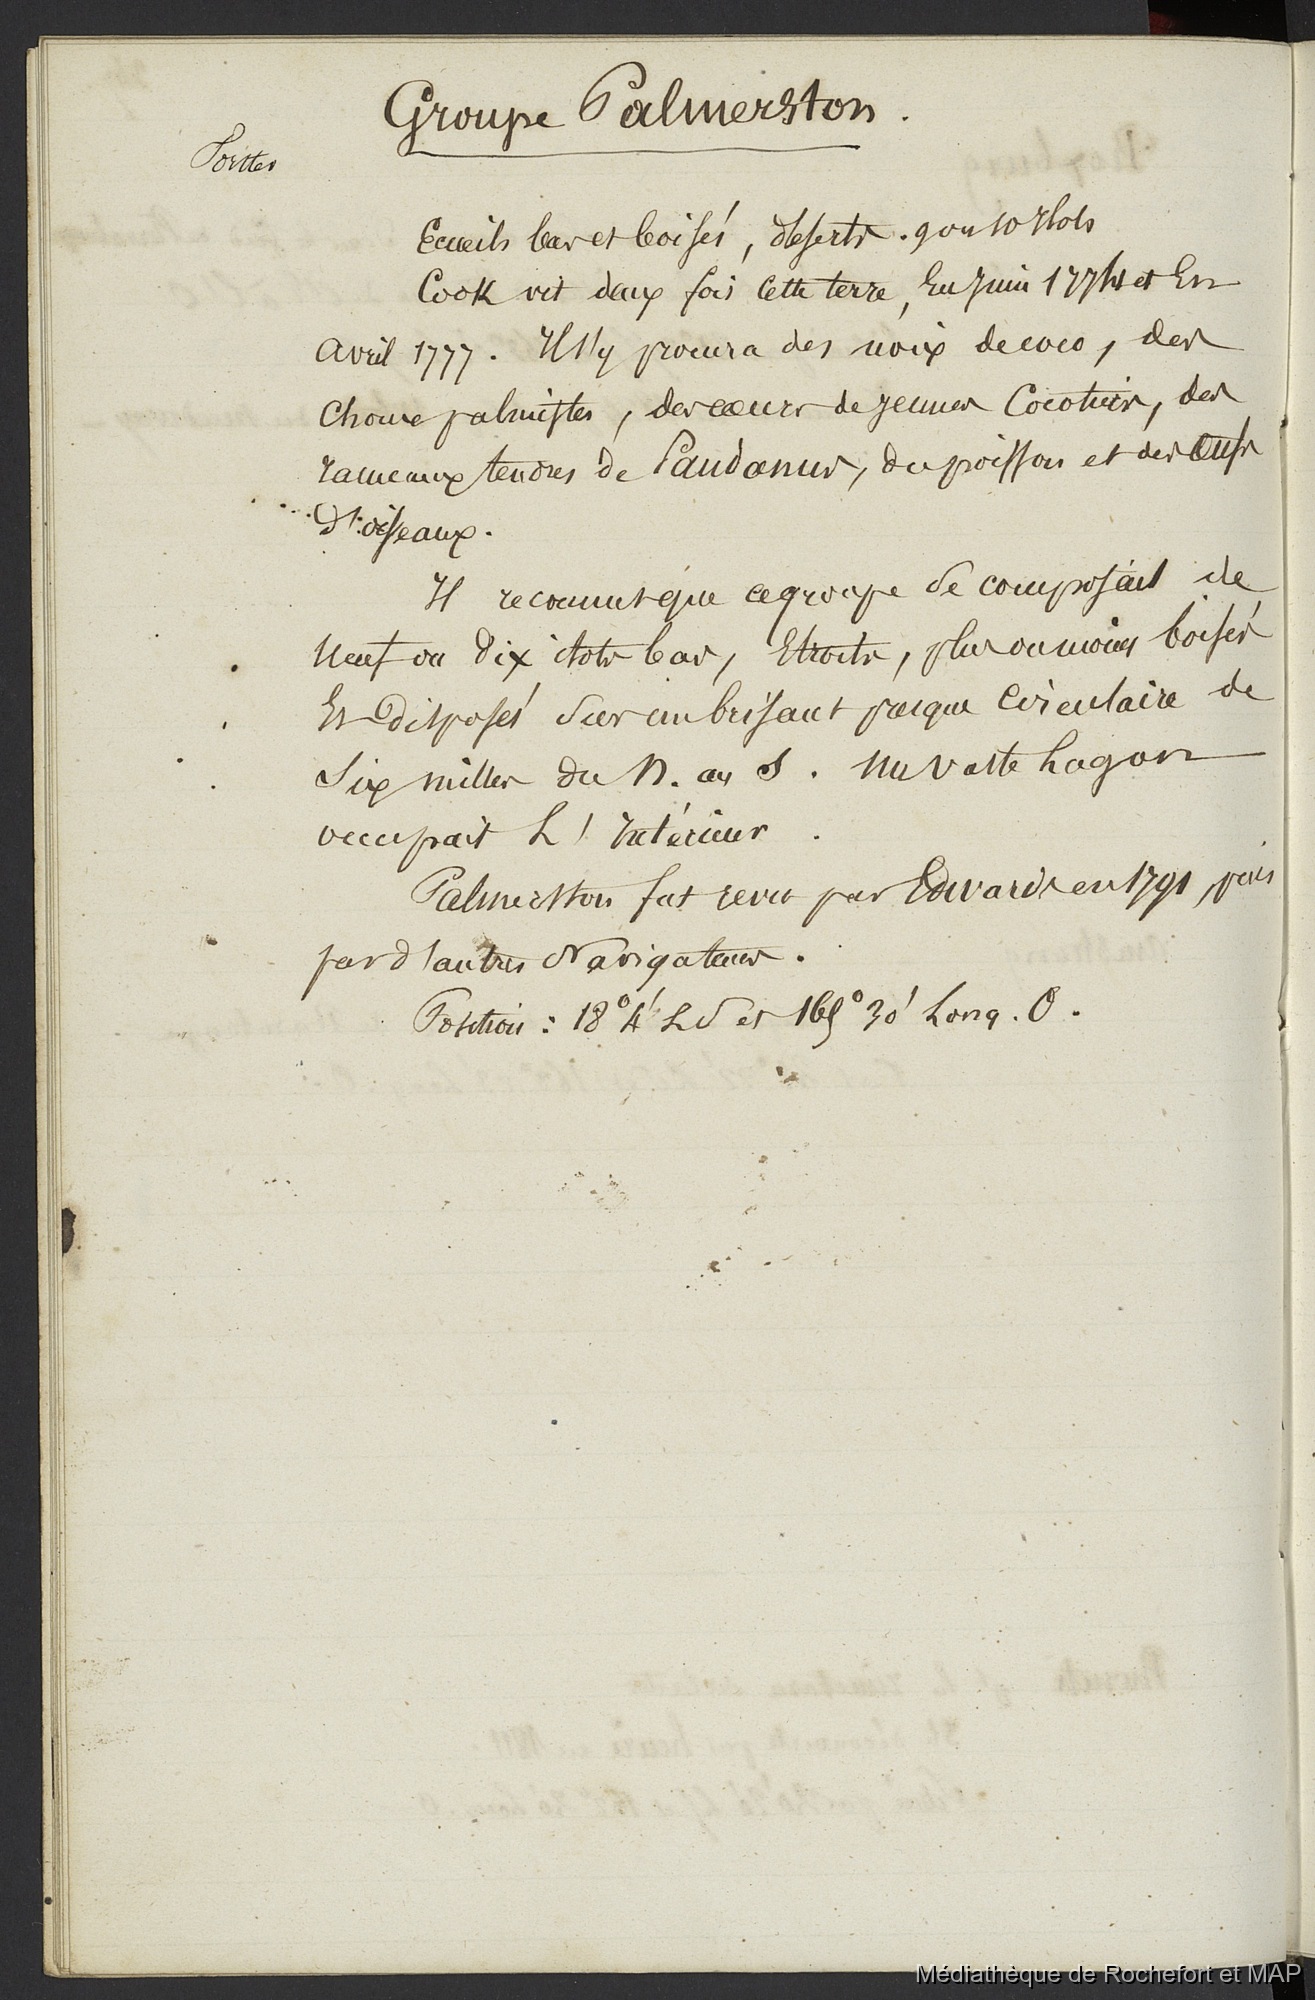 Groupe Palmerston.
Ecueils bas et boisés, déserts. 9 ou 10 Ilots
Cook vit deux fois cette terre, En Juin 1774 et En
Avril 1777. Il s'y procura des noix de coco, des
Choux palmistes, des cœurs de jeunes Cocotiers, des
rameaux tendres de Pandanus, du poisson et des Œufs
d'oiseaux.
Il reconnut que ce groupe se composait de
Neuf ou Dix ilots bas, Etroits, plus ou moins boisés
Et Disposés sur un brisant presque Circulaire de
Six milles du N. au S. Un vaste Lagon
occupait L'Intérieur.
Palmerston fut revu par Edwards en 1791, puis
par d'autres Navigateurs.
Position : 18° 4' L S et 165° 30' Long. O.
Médiathèque de Rochefort et MAP